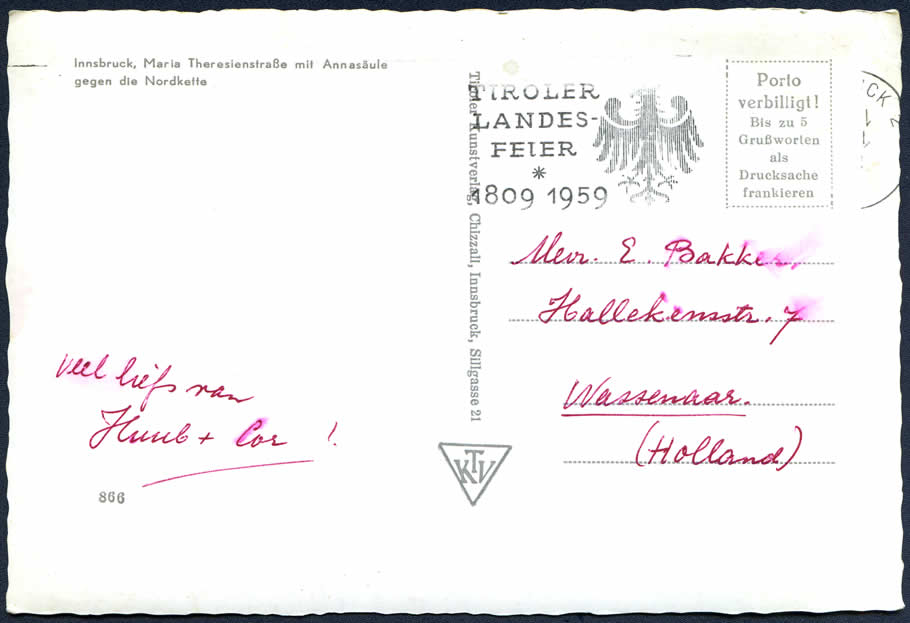 Innsbruck, Maria Theresienstraße mit Annasäule
gegen die Nordkette
Tiroler Kunstverlag, Chizzali, Innsbruck, Sillgasse 21
TIROLER
LANDES-
FEIER
*
1809 1959
Porto
verbilligt!
Bis zu 5
Grußworten
als
Drucksache
frankieren
CK 2
Mevr. E. Bakker,
Hallekensstr. 7
Wassenaar.
(Holland)
Veel liefs van
Huub + Cor !
866
KTV